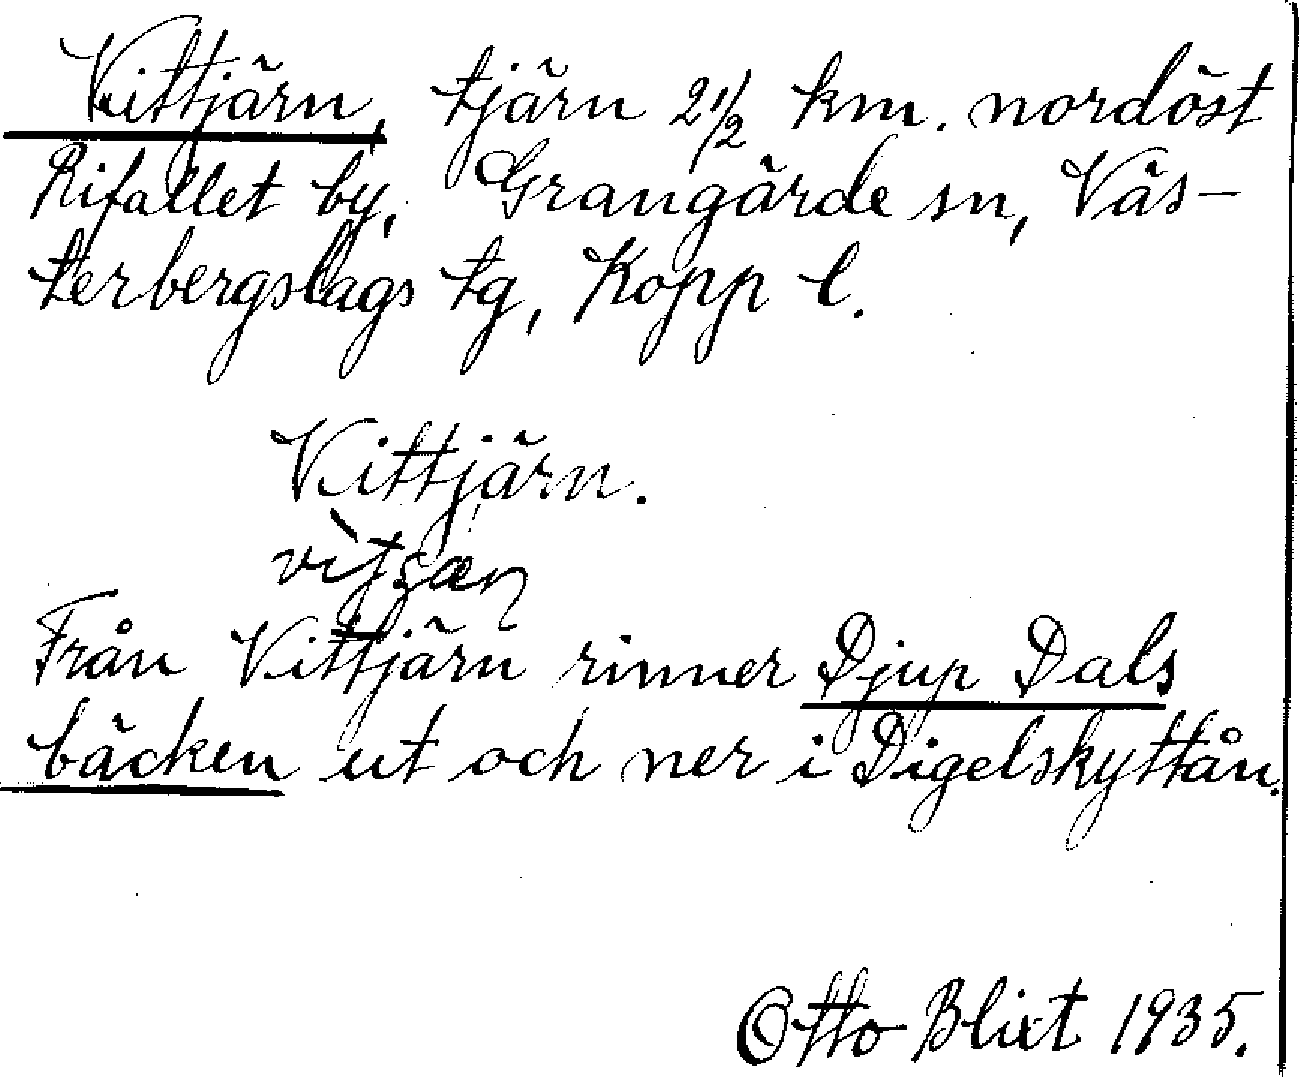 Vittjärn, tjärn 2 1/2 km. nordöst
Rifallet by, Grangärde sn, Väs-
terbergslags tg, Kopp l.
Vittjärn.
Från Vittjärn rinner Djup Dals
bäcken ut och ner i Digelskyttån.
Otto Blixt 1935.